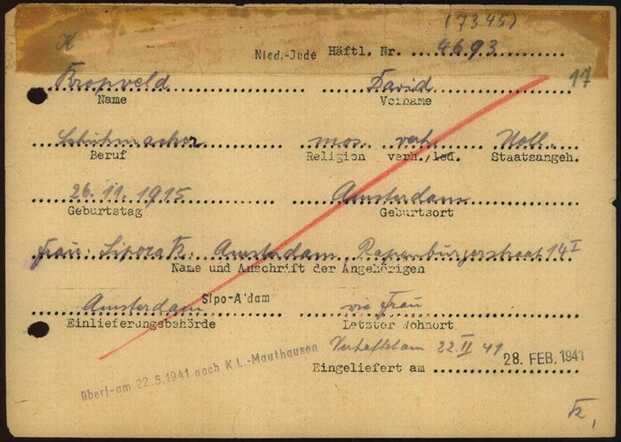 (7345)
Nied.-Jude Häftl. Nr. 4693
17
Kropveld David
Name Vorname
Schuhmacher mos. verh. Holl.
Beruf Religion verh./led. Staatsangeh.
26.11.1915 Amsterdam
Geburtstag Geburtsort
Frau: Sipora K. Amsterdam Rapenburgerstraat 14 I
Name und Anschrift der Angehörigen
Amsterdam Sipo-A'dam wie Frau
Einlieferungsbehörde Letzter Wohnort
Verhaftet am 22.II 41
Eingeliefert am 28. FEB. 1941
Überf-am 22.5.1941 nach K.L.-Mauthausen